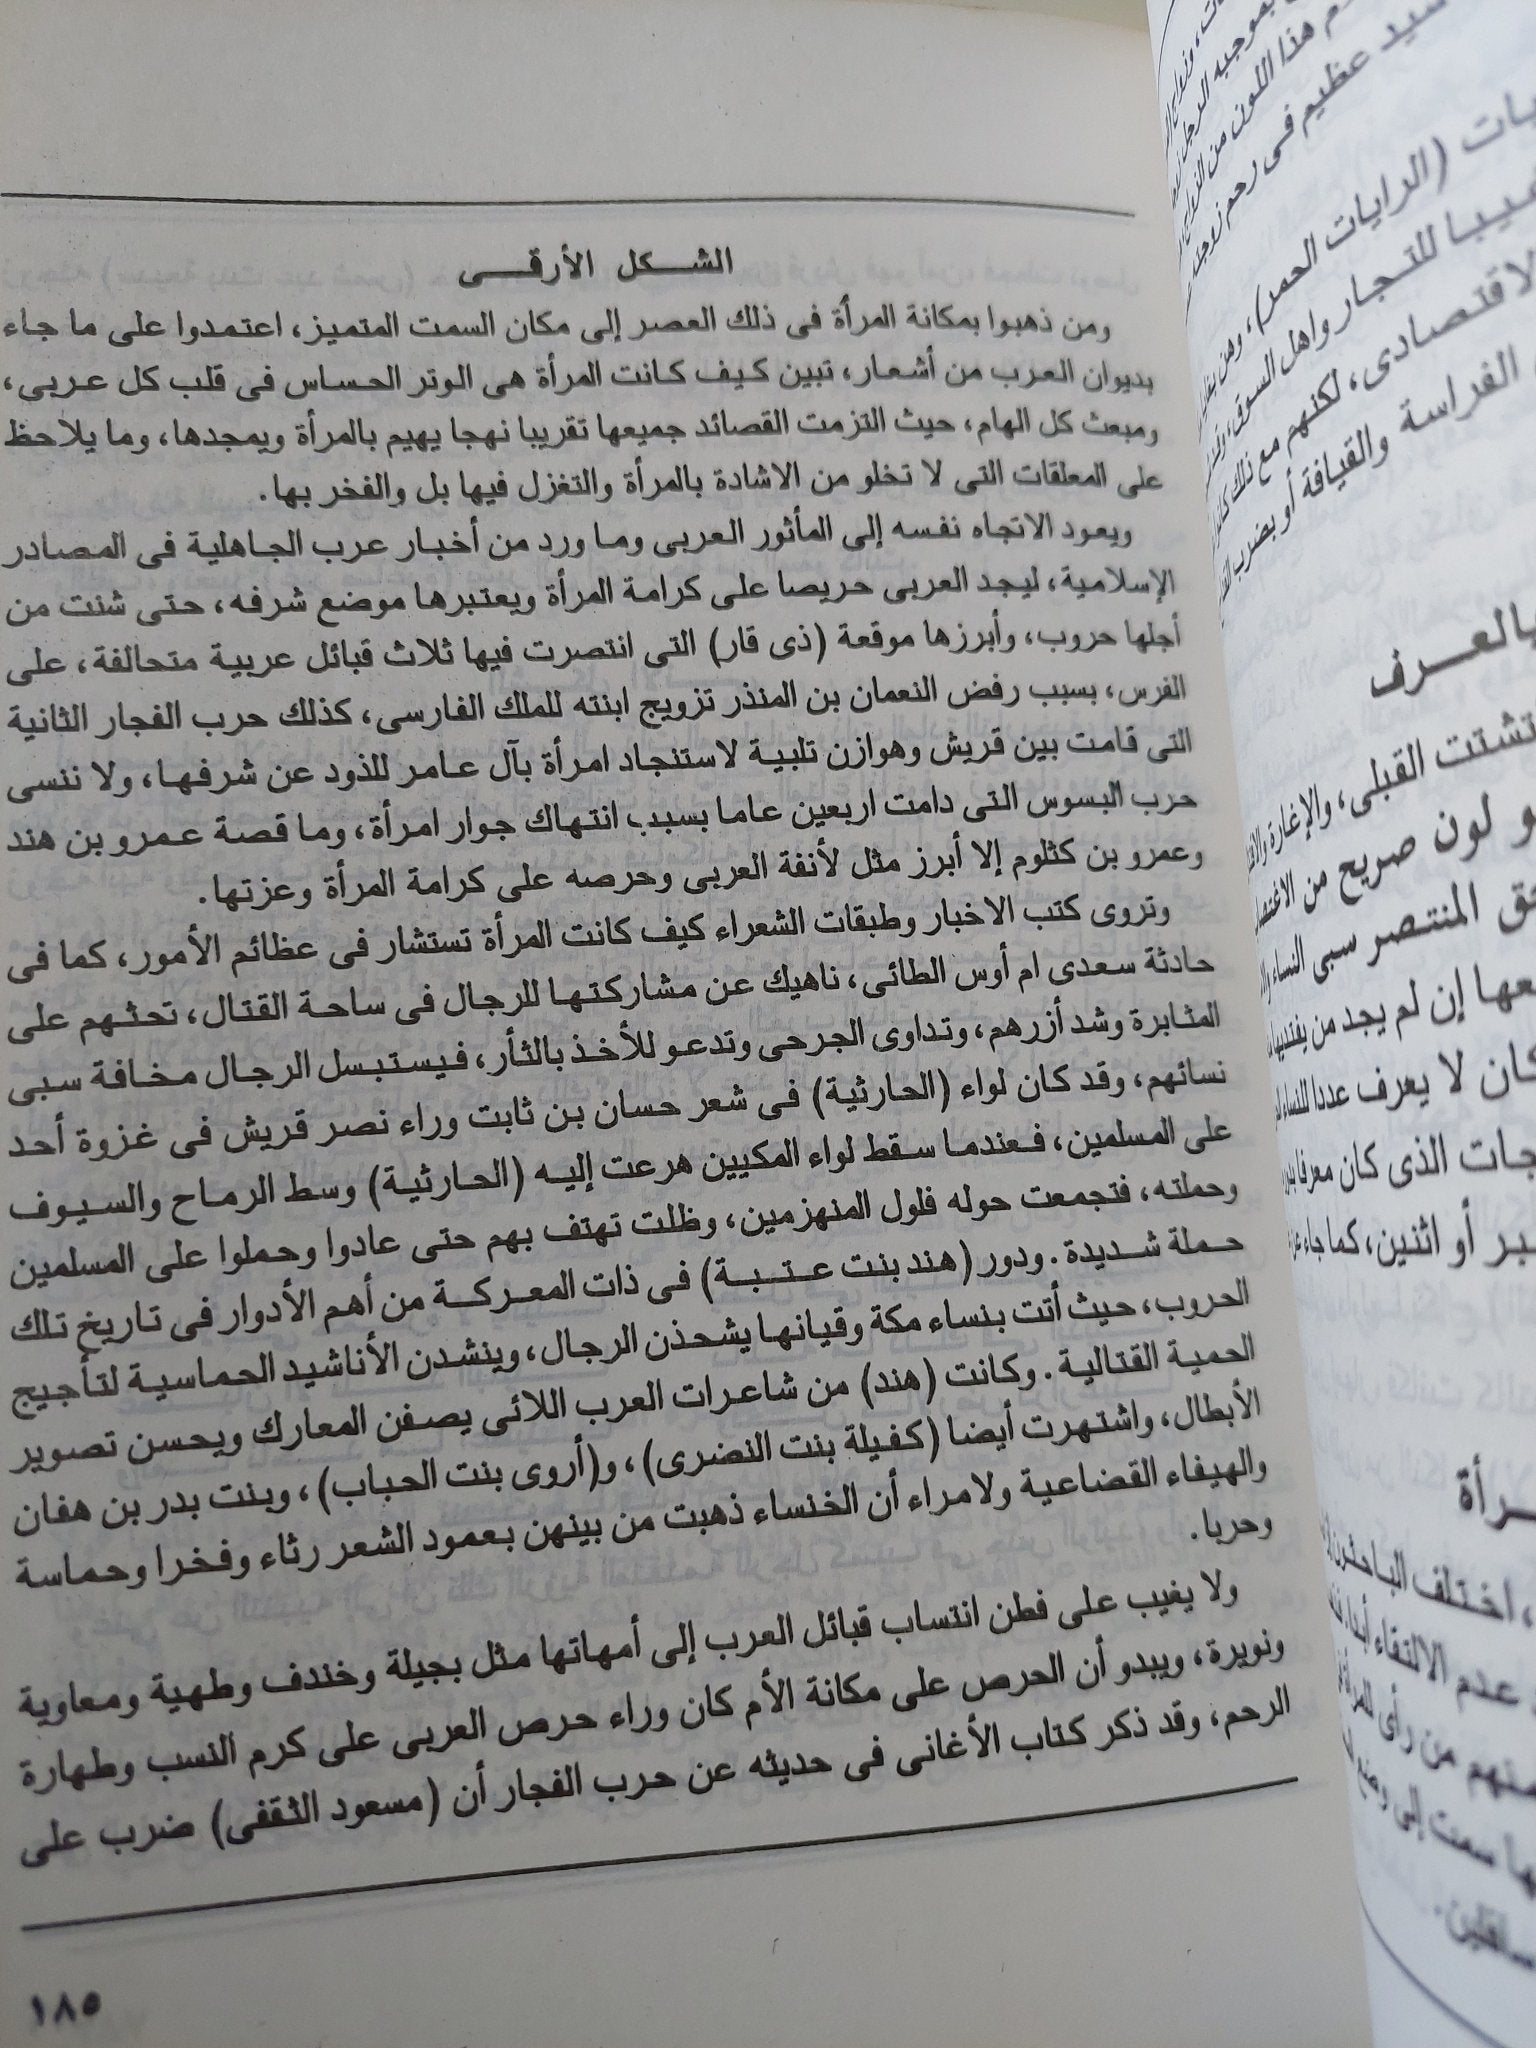 الشكل الأرقى
ومن ذهبوا بمكانة المرأة فى ذلك العصر إلى مكان السمت المتميز، اعتمدوا على ما جاء
بديوان العرب من أشعار، تبين كيف كانت المرأة هى الوتر الحساس فى قلب كل عربى،
ومبعث كل الهام، حيث التزمت القصائد جميعها تقريبا نهجا يهيم بالمرأة ويمجدها، وما يلاحظ
على المعلقات التى لا تخلو من الاشادة بالمرأة والتغزل فيها بل والفخر بها.
ويعود الاتجاه نفسه إلى المأثور العربى وما ورد من أخبار عرب الجاهلية فى المصادر
الإسلامية، ليجد العربى حريصا على كرامة المرأة ويعتبرها موضع شرفه، حتى شنت من
أجلها حروب، وأبرزها موقعة (ذى قار) التى انتصرت فيها ثلاث قبائل عربية متحالفة، على
الفرس، بسبب رفض النعمان بن المنذر تزويج ابنته للملك الفارسى، كذلك حرب الفجار الثانية
التى قامت بين قريش وهوازن تلبية لاستنجاد امرأة بآل عامر للذود عن شرفها، ولا ننسى
حرب البسوس التى دامت اربعين عاما بسبب انتهاك جوار امرأة، وما قصة عمرو بن هند
وعمرو بن كثلوم إلا أبرز مثل لأنفة العربى وحرصه على كرامة المرأة وعزتها.
وتروى كتب الاخبار وطبقات الشعراء كيف كانت المرأة تستشار فى عظائم الأمور، كما فى
حادثة سعدى ام أوس الطائى، ناهيك عن مشاركتها للرجال فى ساحة القتال، تحثهم على
المثابرة وشد أزرهم، وتداوى الجرحى وتدعو للأخذ بالثأر، فيستبسل الرجال مخافة سبى
نسائهم، وقد كان لواء (الحارثية) فى شعر حسان بن ثابت وراء نصر قريش فى غزوة أحد
على المسلمين، فعندما سقط لواء المكيين هرعت إليه (الحارثية) وسط الرماح والسيوف
وحملته، فتجمعت حوله فلول المنهزمين، وظلت تهتف بهم حتى عادوا وحملوا على المسلمين
حملة شديدة. ودور (هند بنت عتبة) فى ذات المعركة من أهم الأدوار فى تاريخ تلك
الحروب، حيث أتت بنساء مكة وقيانها يشحذن الرجال، وينشدن الأناشيد الحماسية لتأجيج
الحمية القتالية. وكانت (هند) من شاعرات العرب اللائى يصفن المعارك ويحسن تصوير
الأبطال، واشتهرت أيضا (كفيلة بنت النضرى)، و(أروى بنت الحباب)، وبنت بدر بن هفان
والهيفاء القضاعية ولامراء أن الخنساء ذهبت من بينهن بعمود الشعر رثاء وفخرا وحماسة
وحربا.
ولا يغيب على فطن انتساب قبائل العرب إلى أمهاتها مثل بجيلة وخندف وطهية ومعاوية
ونويرة، ويبدو أن الحرص على مكانة الأم كان وراء حرص العربى على كرم النسب وطهارة
الرحم، وقد ذكر كتاب الأغانى فى حديثه عن حرب الفجار أن (مسعود الثقفى) ضرب على
١٨٥
سيد عظيم فى رحم زوجته
(الرايات الحمر)، وهن
للتجار واهل السوق،
لكنهم مع ذلك
الفراسة والقيافة أو بضرب
بالعرف
تشتت القبلى، والإغارة
لون صريح من
المنتصر سبى النساء
إن لم يجد من يفتديها
كان لا يعرف عددا للنساء
الذى كان معرفا
أو اثنين، كما جاء
اختلف الباحثون
عدم الالتقاء
من رأى للمرأة
سمت إلى